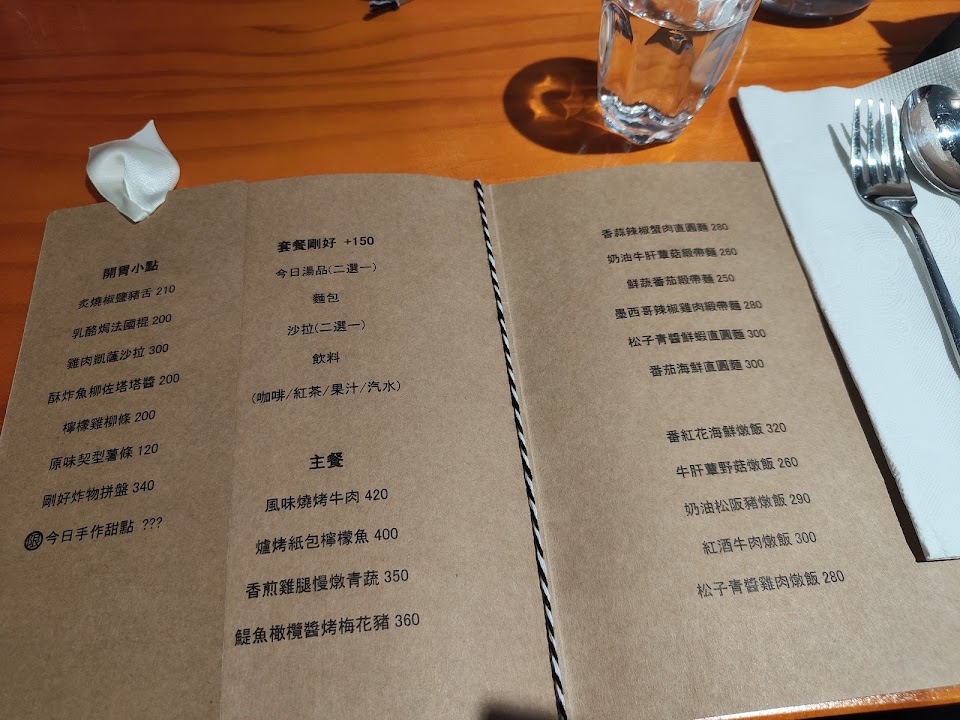 開胃小點
炙燒椒鹽豬舌 210
乳酪焗法國棍 200
雞肉凱薩沙拉 300
酥炸魚柳佐塔塔醬 200
檸檬雞柳條 200
原味契型薯條 120
剛好炸物拼盤 340
限今日手作甜點 ???
套餐剛好 +150
今日湯品(二選一)
麵包
沙拉(二選一)
飲料
(咖啡/紅茶/果汁/汽水)
主餐
風味燒烤牛肉 420
爐烤紙包檸檬魚 400
香煎雞腿慢燉青蔬 350
鯷魚橄欖醬烤梅花豬 360
香蒜辣椒蟹肉直圓麵 280
奶油牛肝蕈菇緞帶麵 260
鮮蔬番茄緞帶麵 250
墨西哥辣椒雞肉緞帶麵 280
松子青醬鮮蝦直圓麵 300
番茄海鮮直圓麵 300
番紅花海鮮燉飯 320
牛肝蕈野菇燉飯 260
奶油松阪豬燉飯 290
紅酒牛肉燉飯 300
松子青醬雞肉燉飯 280